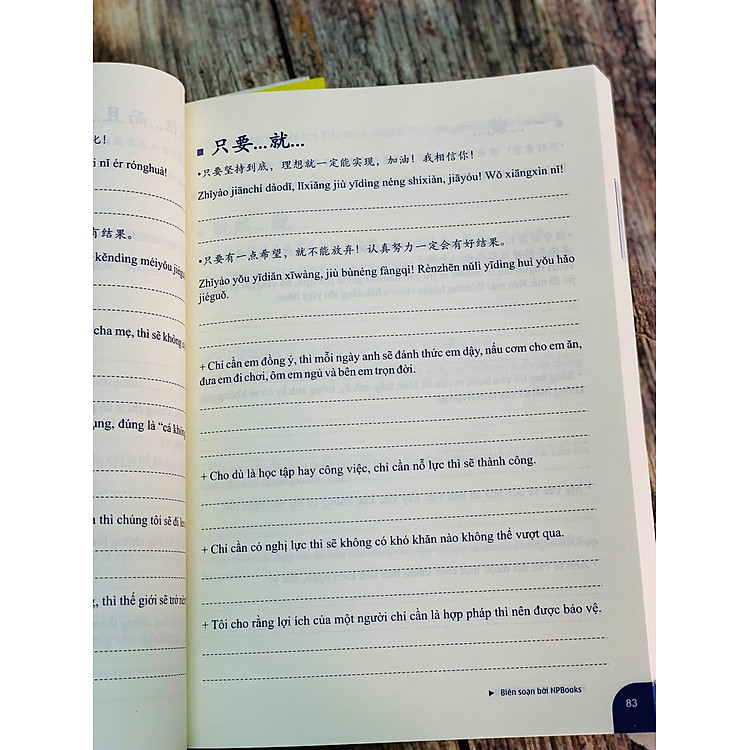 而且
化！
i nǐ ér rónghuà!
有结果。
kěndìng méiyǒu
cha mẹ, thì sẽ không
ụng, đúng là “cá không
thì chúng tôi sẽ đi
g, thì thế giới sẽ trở
■ 只要...就...
•只要坚持到底，理想就一定能实现，加油！我相信你！
Zhǐyào jiānchí dàodǐ, lǐxiǎng jiù yīdìng néng shíxiàn, jiāyóu! Wǒ xiāngxìn nǐ!
•只要有一点希望，就不能放弃！认真努力一定会有好结果。
Zhǐyào yǒu yīdiǎn xīwàng, jiù bùnéng fàngqì! Rènzhēn nǔlì yīdìng huì yǒu hǎo
jiéguǒ.
+ Chỉ cần em đồng ý, thì mỗi ngày anh sẽ đánh thức em dậy, nấu cơm cho em ăn,
đưa em đi chơi, ôm em ngủ và bên em trọn đời.
+ Cho dù là học tập hay công việc, chỉ cần nỗ lực thì sẽ thành công.
+ Chỉ cần có nghị lực thì sẽ không có khó khăn nào không thể vượt qua.
+ Tôi cho rằng lợi ích của một người chỉ cần là hợp pháp thì nên được bảo vệ.
▶ Biên soạn bởi NPBooks
83